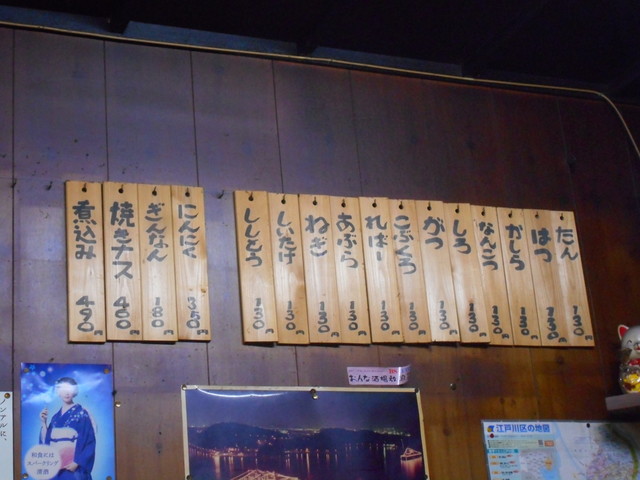 たん 130円
はつ 130円
かしら 130円
なんこつ 130円
しろ 130円
がつ 130円
こぶくろ 130円
ればー 130円
あぶら 130円
ねぎ 130円
しいたけ 130円
ししとう 130円
にんにく 350円
ぎんなん 180円
焼きナス 400円
煮込み 490円
おんな酒場
江戸川区の地図
和食には
スパークリング
清酒
ノンアルに、